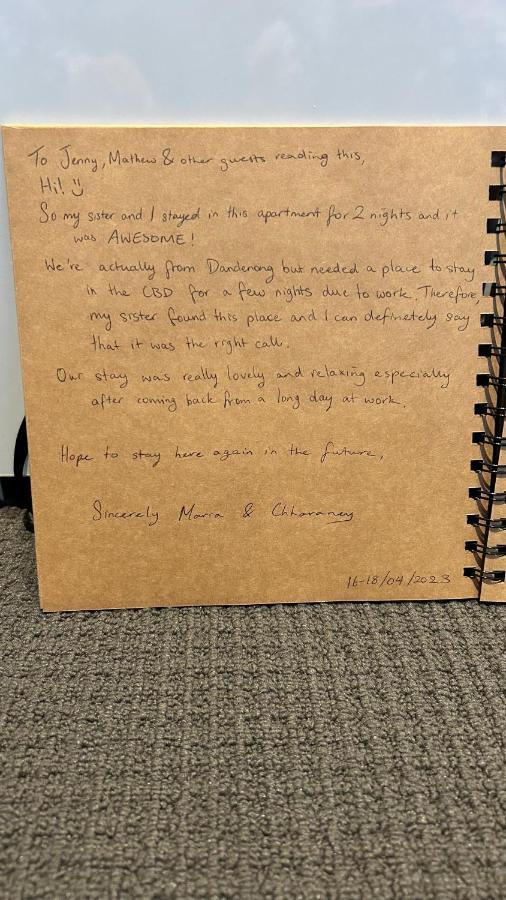 To Jenny, Mathew & other guests reading this,
Hi! :)
So my sister and I stayed in this apartment for 2 nights and it
was AWESOME!
We're actually from Dandenong but needed a place to stay
in the CBD for a few nights due to work. Therefore,
my sister found this place and I can definetely say
that it was the right call.
Our stay was really lovely and relaxing especially
after coming back from a long day at work.
Hope to stay here again in the future,
Sincerely Maria &
16-18/04/2023